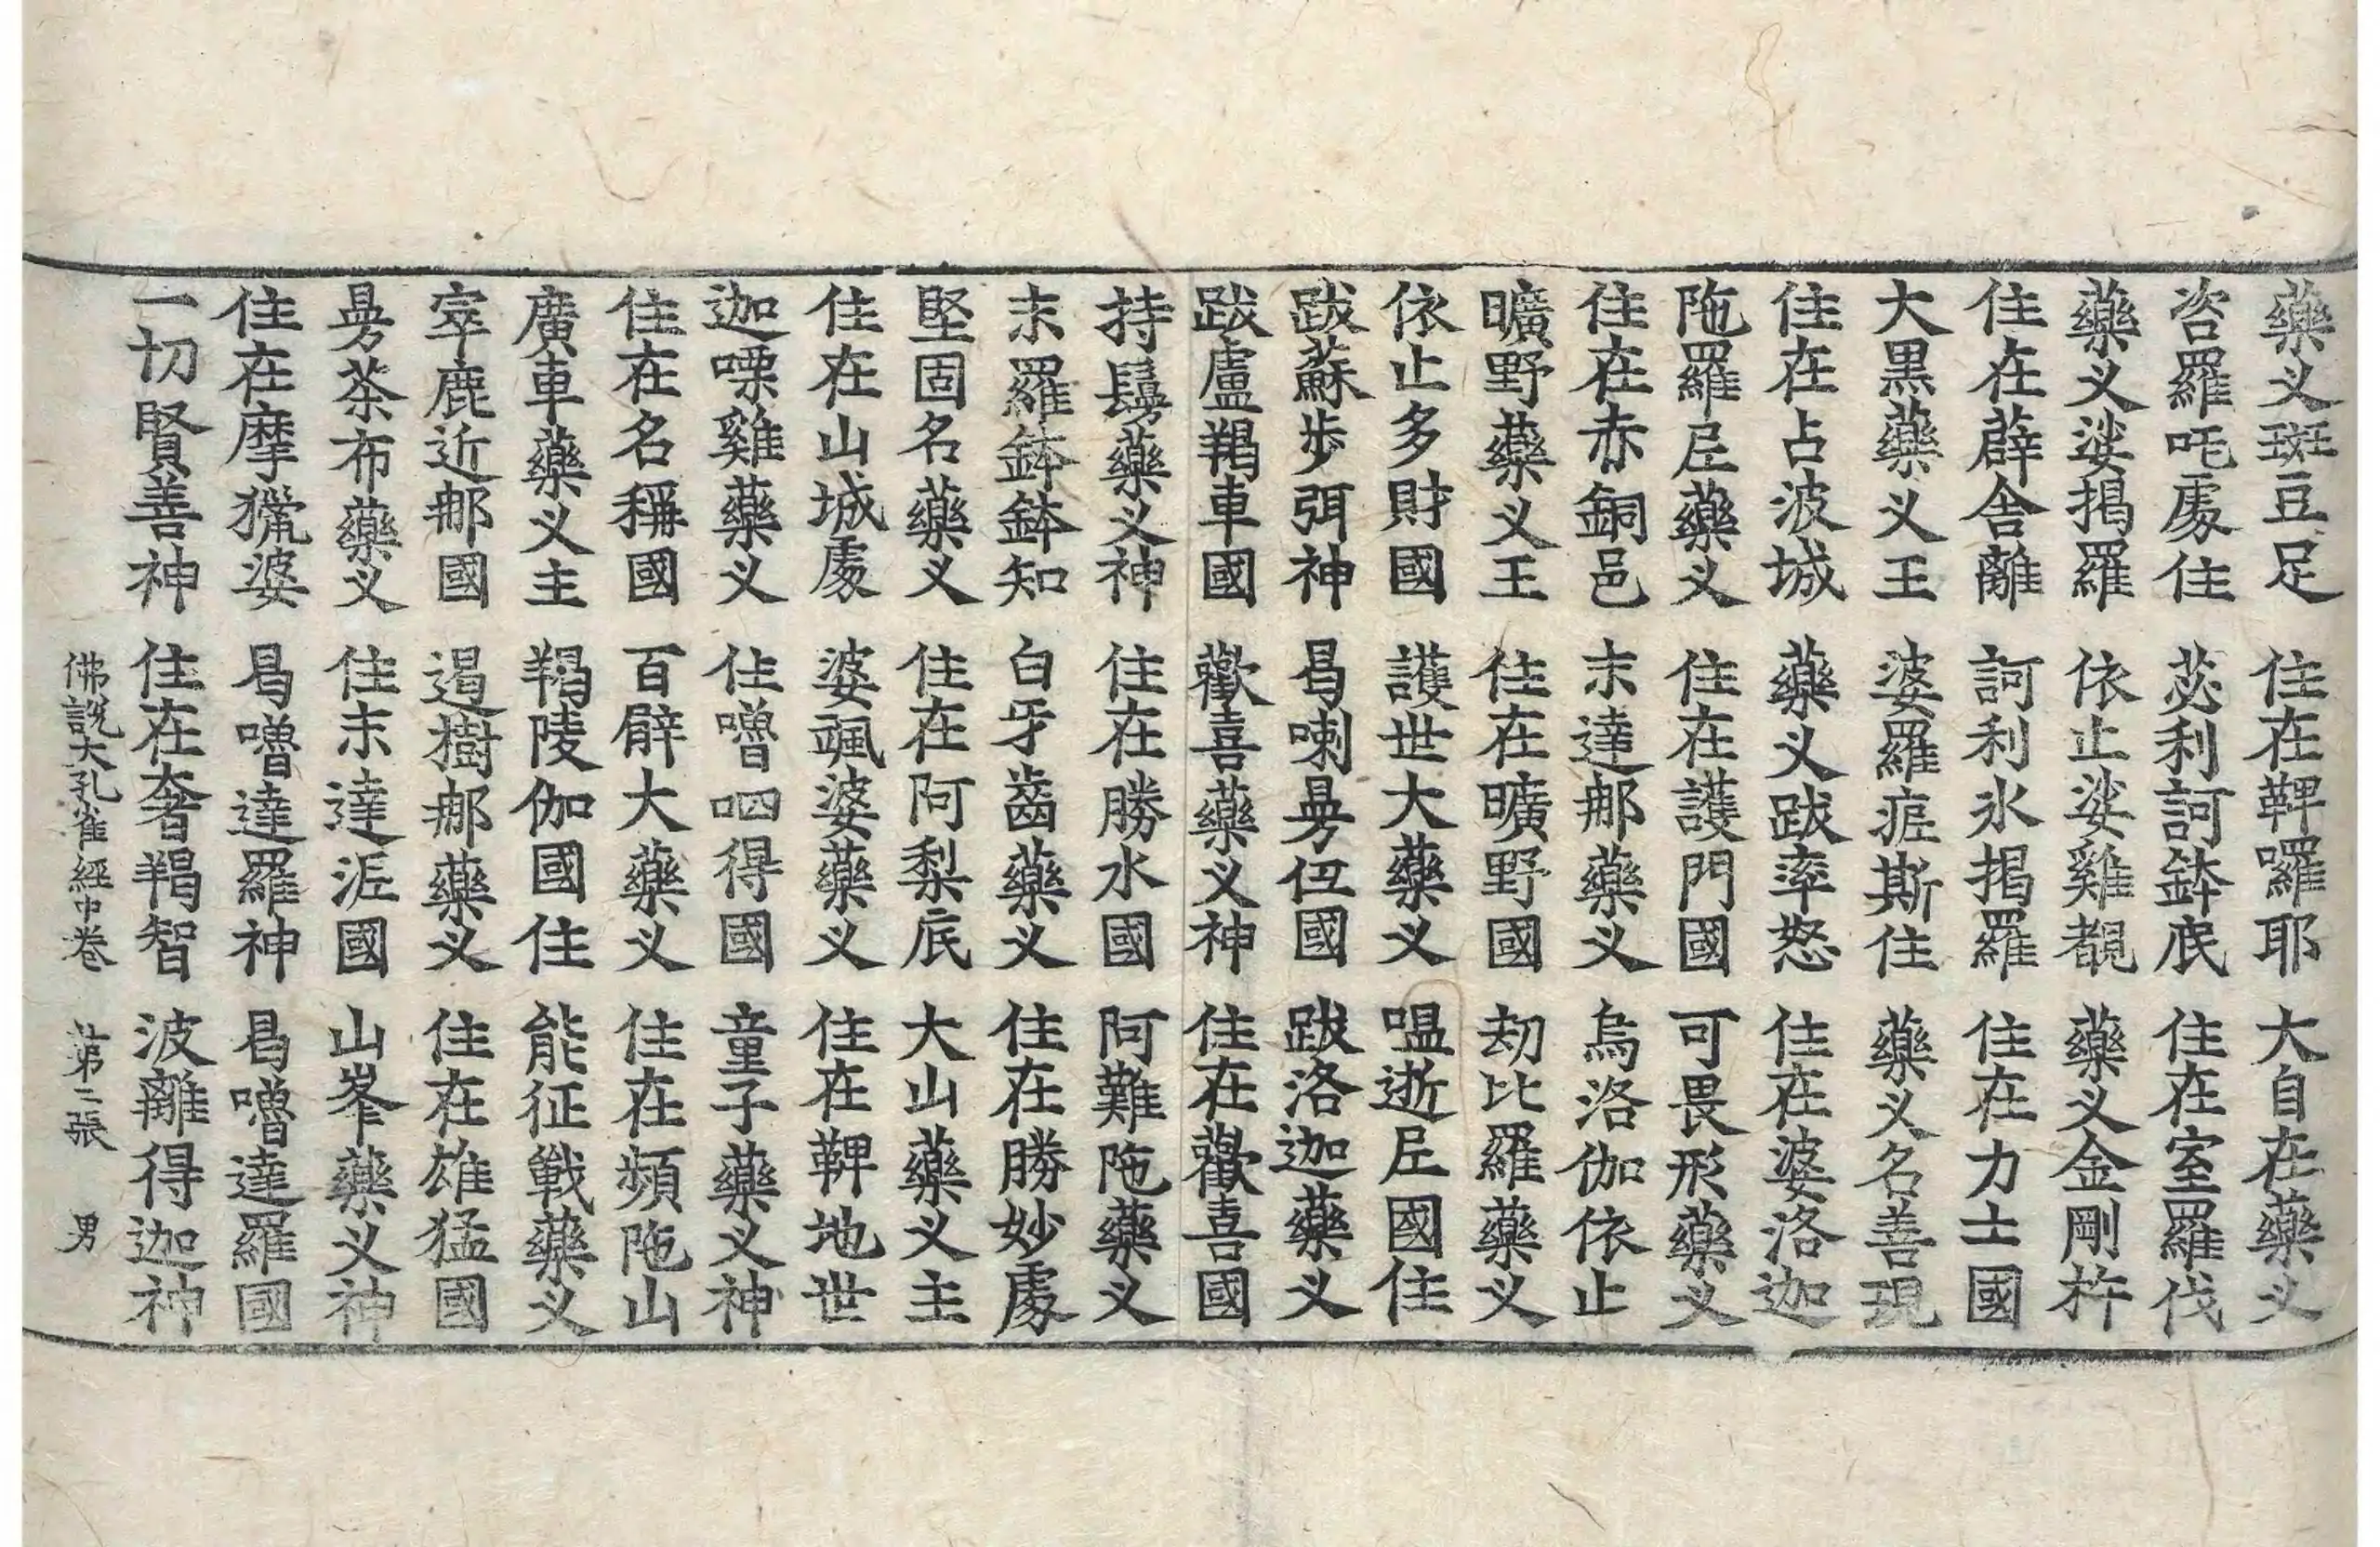 藥义斑豆足　住在鞞囉耶　大自在藥义
咨羅吒處住　苾利訶鉢底　住在室羅伐
藥义娑揭羅　依止娑雞覩　藥义金剛杵
住在薜舍離　訶利氷揭羅　住在力士國
大黒藥义王　婆羅痆斯住　藥义名善現
住在占波城　藥义跋率怒　住在婆洛迦
陁羅𡰱藥义　住在護門國　可畏形藥义
住在赤銅邑　末達郍藥义　烏洛伽依止
曠野藥义王　住在曠野國　刼比羅藥义
依止多財國　護世大藥义　嗢逝𡰱國住
跋蘇歩弭神　曷喇曼伍國　跋洛迦藥义
跋盧羯車國　歡喜藥义神　住在歡喜國
持鬘藥义神　住在勝水國　阿難陁藥义
末羅鉢鉢知　白牙齒藥义　住在勝妙處
堅固名藥义　住在阿梨底　大山藥义主
住在山城處　婆颯婆藥义　住在鞞地世
迦㗚雞藥义　住噜呬得國　童子藥义神
住在名稱國　百臂大藥义　住在頻陁山
廣車藥义主　羯陵伽國住　能征戰藥义
窣鹿近郍國　遏樹郍藥义　住在雄猛國
曼荼布藥义　住末達泥國　山峯藥义神
住在摩㺉婆　曷噜達羅神　曷噜達羅國
一切賢善神　住在奢羯智　波離得迦神
佛說大孔雀經中卷　第二張　男